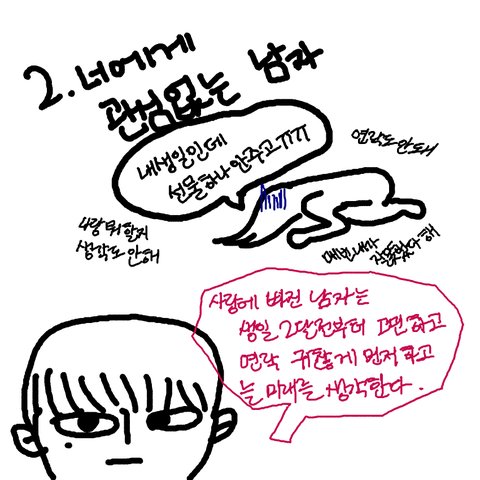 2. 너에게
관심없는 남자
내 생일인데
선물하나 안주고 ㄲㄲ
연락도 안돼
나랑 뭐 할지
생각도 안해
맨날 내가
잘못했다 해
사랑에 빠진 남자는
생일 2달전부터 고민하고
연락 귀찮게 먼저 하고
늘 미래를 생각한다.